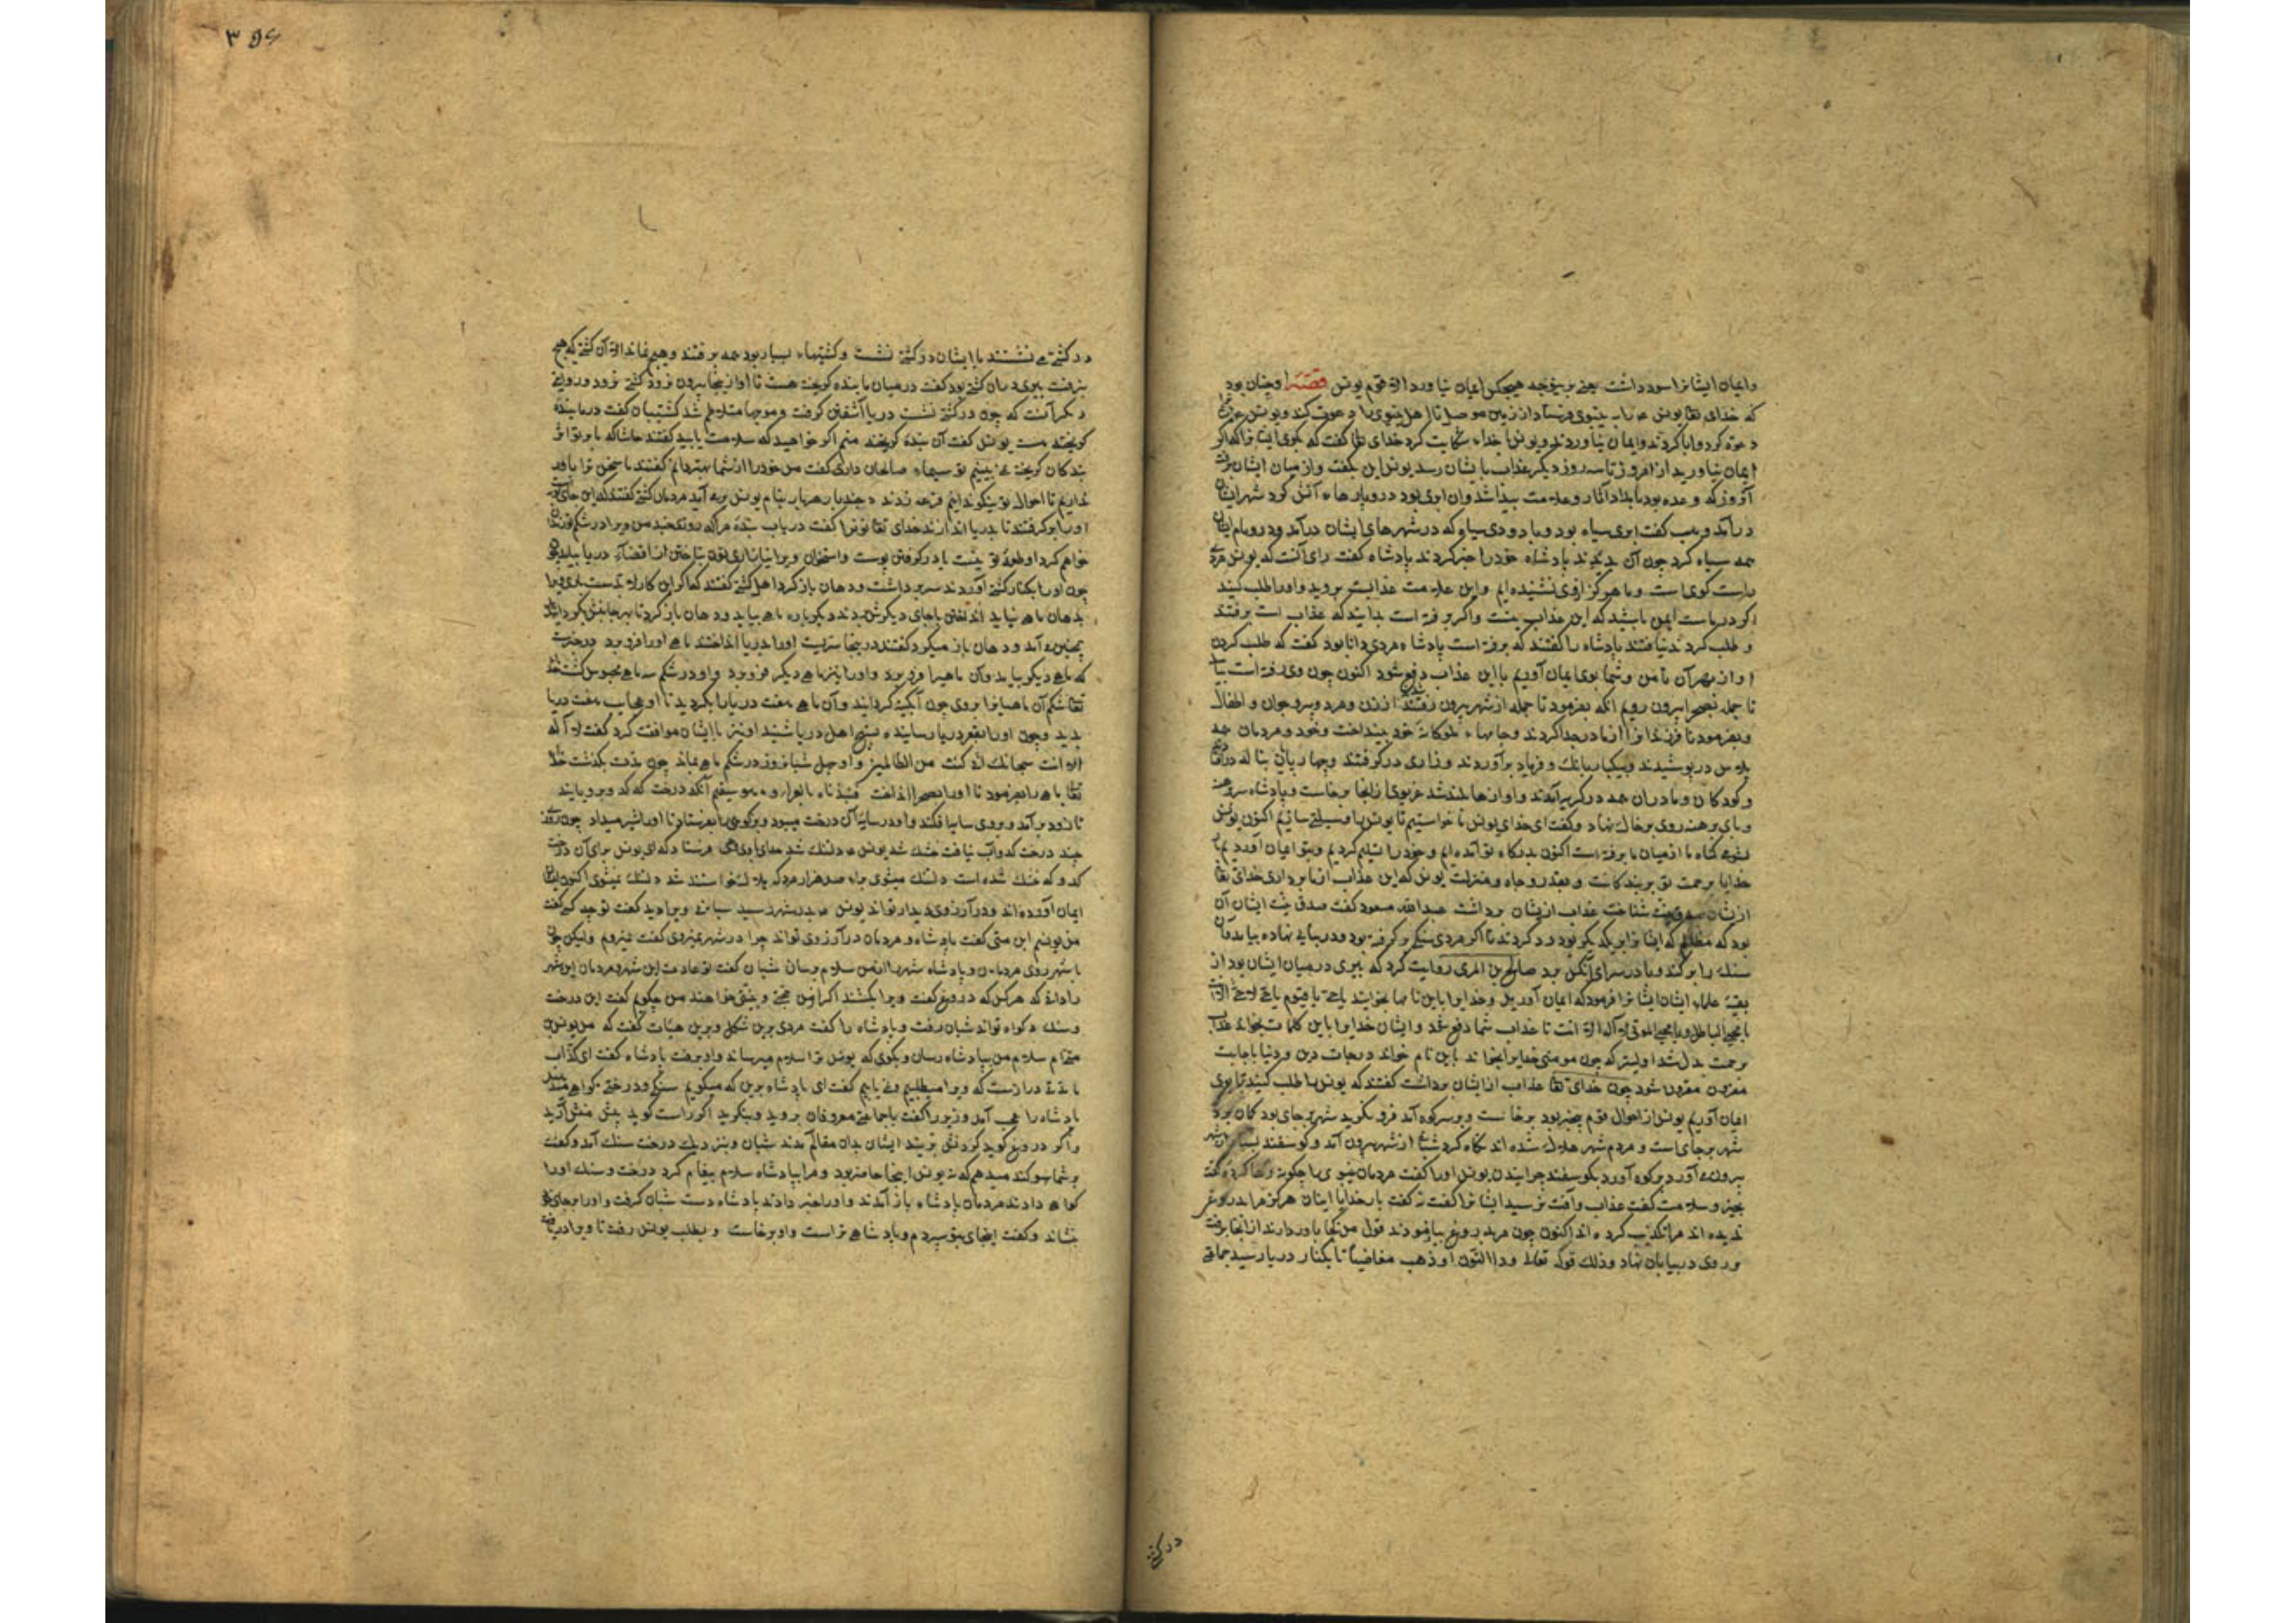 وایمان ایشانرا سود داشت یعنی برینوجه هیچکس ایمان نیاورد الا قوم یونس قصته او چنان بود
که خدای تعالی یونس را به نینوی فرستاد از زمین موصل تا اهل نینوی را دعوت کند و یونس
دعوة کرد و ابا کردند و ایمان نیاوردند و یونس با خدای شکایت کرد خدای تعالی گفت که بگوی ایشانرا که اگر
ایمان نیاورید از امروز تا سه روز دیگر عذاب بایشان رسد یونس این بگفت و از میان ایشان برفت
آنروز که وعده بود بامداد آثار و علامت پیدا شد و آن ابری بود در و پارهاء آتش گرد شهر ایشان
درآمد و وهب گفت ابری سیاه بود و با دودی سیاه که در شهرهای ایشان درآمد و در و بام ایشان
همه سیاه کرد چون آن بدیدند پادشاه خود را خبر کردند پادشاه گفت رای آنست که یونس مردی
راست کوی است و ما هرگز ازوی نشنیده ایم و این علامت عذابست بروید و اورا طلب کنید
اگر در ماست ایمن باشید که این عذاب نیست و اگر برفته است بدانید که عذاب است برفتند
و طلب کردند نیافتند پادشاه را گفتند که برفته است پادشاه مردی دانا بود گفت که طلب کردن
او از بهر آن تا من و شما بوی ایمان آوریم تا این عذاب دفع شود اکنون چون وی رفته است بیایید
تا جمله بصحرا بیرون رویم آنگه بفرمود تا جمله از شهر بیرون رفتند از زن و مرد و پیر و جوان و اطفال
و بفرمود تا فرزندانرا از مادر جدا کردند و جامهاء ملوکانه خود بینداخت و خود و مردمان همه
پلاس در پوشیدند و بیکبار بانک و فریاد برآوردند و زاری در گرفتند و چهارپایان بناله درآمدند
و کودکان و مادران همه در گریه آمدند و آوازها بلند شد غریوی از آنجا برخاست و پادشاه سر برهنه
و پای برهنه روی بر خاک نهاد و گفت ای خدای یونس ما خواستیم تا یونس را وسیلت سازیم اکنون یونس
بشومی گناه ما از میان ما برفته است اکنون بدرگاه تو آمده ایم و خود را تسلیم کردیم و بتو ایمان آوردیم
خدایا برحمت تو بر بندکانت و بقدر و جاه و منزلت یونس که این عذاب از ما برداری خدای تعالی
ازیشان صدق نیت شناخت عذاب ازیشان برداشت عبدالله مسعود گفت صدق نیت ایشان آن
بود که مظالم که ایشانرا بر یکدیگر بود رد کردند تا اگر مردی سنگی برگرفته بود و در بنائی نهاده بیامد و آن
سنک را برکند و با در سرای آنکس برد صالح بن المری روایت کرد که پیری در میان ایشان بود از
بقیة علماء ایشان ایشانرا فرمود که ایمان آورید و خدایرا باین نامها بخوانید یا حی یا قیوم یا حی لا حی
یا محیی الموتی لا اله الا انت تا عذاب شما دفع شد و ایشان خدایرا باین کلمات بخواند عذاب
برحمت بدل شد اولیتر که چون مومنی خدایرا بخواند باین نام خواند درجات دین و دنیا باجابت
مقرون شود چون خدای تعالی عذاب ازایشان برداشت گفتند که یونس را طلب کنید تا بوی
ایمان آوریم یونس از احوال قوم بیخبر بود برخاست و بر سر کوه آمد فرو نگرید شهر بر جای بود کمان برد
شهر بر جای است و مردم شهر هلاک شده اند نگاه کرد شبانی از شهر بیرون آمد و گوسفند بسیار از شهر
بیرون آورد بر کوه آورد بگوسفند چرانیدن یونس اورا گفت مردمان نینوی را چگونه رها کردی گفت
بخیر و سلامت گفت عذاب و آفت نرسید ایشانرا گفت نه گفت بار خدایا اینان هرگز مرا بدروغ
ندیده اند مرا تکذیب کرده اند اکنون چون مرا بدروغ بیازمودند قول من کجا باور دارند از آنجا برفت
و روی در بیابان نهاد و ذلک قوله تعالی و ذا النون اذ ذهب مغاضباً تا بکنار دریا رسید جماعتی
در کشتی
در کشتی می نشستند با ایشان در کشتی نشست و کشتیهاء بسیار بود همه برفتند و هیچ نماند الا آن کشتی که هیچ
نرفت پیری در آن کشتی بود گفت در میان ما بنده گریخته هست تا او از اینجا بیرون نرود کشتی نرود و روایتی
دیگر آنست که چون در کشتی نشست دریا آشفتن گرفت و موجها متلاطم شد کشتیبان گفت در ما بندهٔ
گریخته هست یونس گفت آن بنده گریخته منم اگر خواهید که سلامت یابید گفتند حاشا که ما بر تو اثر
بندکان گریخته نمی بینیم تو سیماء صالحان داری گفت من خود را از شما بهتر دانم گفتند ما سخن ترا باور
نداریم تا احوال تو نیکو ندانیم قرعه زدند و چند بار هر بار بنام یونس بر می آید مردمان کشتی گفتند که این
اورا برگرفتند تا بدریا اندازند خدای تعالی نونرا گفت دریاب بندهٔ مرا که روزکی چند من ویرا در شکم تو زندان
خواهم کرد او طعمهٔ تو نیست
چون اورا بکنار کشتی آوردند سر برداشت و دهان باز کرد اهل کشتی گفتند
بدهان ماهی نباید انداختن با جای دیگرش بردند دیگر باره ماهی بیامد و دهان باز کرد تا بهر جانبش
همچنین می آمد و دهان باز میکرد گفتند در اینجا سریست اورا بدریا انداختند ماهی اورا فرو برد
که ماهی دیگر بیامد و آن ماهیرا فرو برد و اورا نیز ماهی دیگر فرو برد و او در شکم سه ماهی محبوس گشت
تعالی شکم آن ماهیانرا بروی چون آبگینه گردانید و آن ماهی هفت دریا را بگردید تا او عجایب هفت دریا
بدید و چون اورا بقعر دریا رسانیده تسبیح اهل دریا شنید او نیز با ایشان موافقت کرد گفت لا اله
الا انت سبحانک انی کنت من الظالمین و او چهل شبانروز در شکم ماهی بماند چون مدت بگذشت خدای
تعالی ماهی را بفرمود تا اورا بصحرا انداخت فنبذناه بالعراء و هو سقیم آنگه درخت کدو برویانید
تا زود برآمد و بروی سایه افکند و او در سایهٔ آن درخت میبود و بز کوهی را بفرستاد تا اورا شیر میداد چون روزی
چند درخت کدو آب نیافت خشک شد یونس دلتنک شد خدای وحی فرستاد که ای یونس برای آن درخت
کدو که خشک شده است دلتنک میشوی برای صد هزار مرد که هلاک خواستند شد دلتنک نمیشوی اکنون ایشان
ایمان آورده اند و در آرزوی دیدار تواند یونس بدر شهر رسید شبانی ویرا دید گفت تو چه کسی گفت
من یونسم ابن متی گفت پادشاه و مردمان در آرزوی تواند چرا در شهر نمیروی گفت نمیروم ولیکن چون
با شهر روی مردمان و پادشاه شهر را از من سلام برسان شبان گفت تو عادت این شهر و مردمان این شهر
را دانی که هرکس که دروغ گفت ویرا بکشند اگر از من حجتی و بینتی خواهند من چگویم گفت این درخت
و سنک گواه تواند شبان رفت و پادشاه را گفت مردی برین شکل و برین هیات گفت که من یونس بن
متی ام سلام من بپادشاه رسان و بگوی که یونس ترا سلام میرساند و او برفت پادشاه گفت ای کذاب
ما مدتی درازست که ویرا میطلبیم و نمی یابیم گفت ای پادشاه برین که میگویم سنگی و درختی گواه منند
پادشاه را عجب آمد وزیر را گفت با جماعتی معروفان بروید و بنگرید اگر راست گوید پیش منش آرید
و اگر دروغ گوید گردنش بزنید ایشان بدان مقام آمدند شبان و بنزدیک درخت سنک آمد و گفت
بر شما سوگند میدهم که نه یونس اینجا حاضر بود و مرا بپادشاه سلام پیغام کرد درخت و سنک اورا
گواهی دادند مردمان پادشاه باز آمدند و اورا خبر دادند پادشاه دست شبان گرفت و اورا بر جای خود
نشاند و گفت اینجای بتو سپردم و پادشاهی تراست و او برخاست و بطلب یونس رفت تا ویرا دریافت